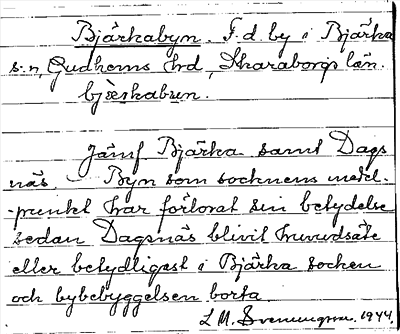 Bjärkabyn. F. d. by i Bjärka
s:n, Gudhems hd, Skaraborgs län.
bjærkabyn.
Jämf Bjärka samt Dags
näs - Byn som socknens medel-
-punkt har förlorat sin betydelse
sedan Dagsnäs blivit huvudsäte
eller betydligast i Bjärka socken
och bybebyggelsen borta.
L M. Svenungsson. 1944.